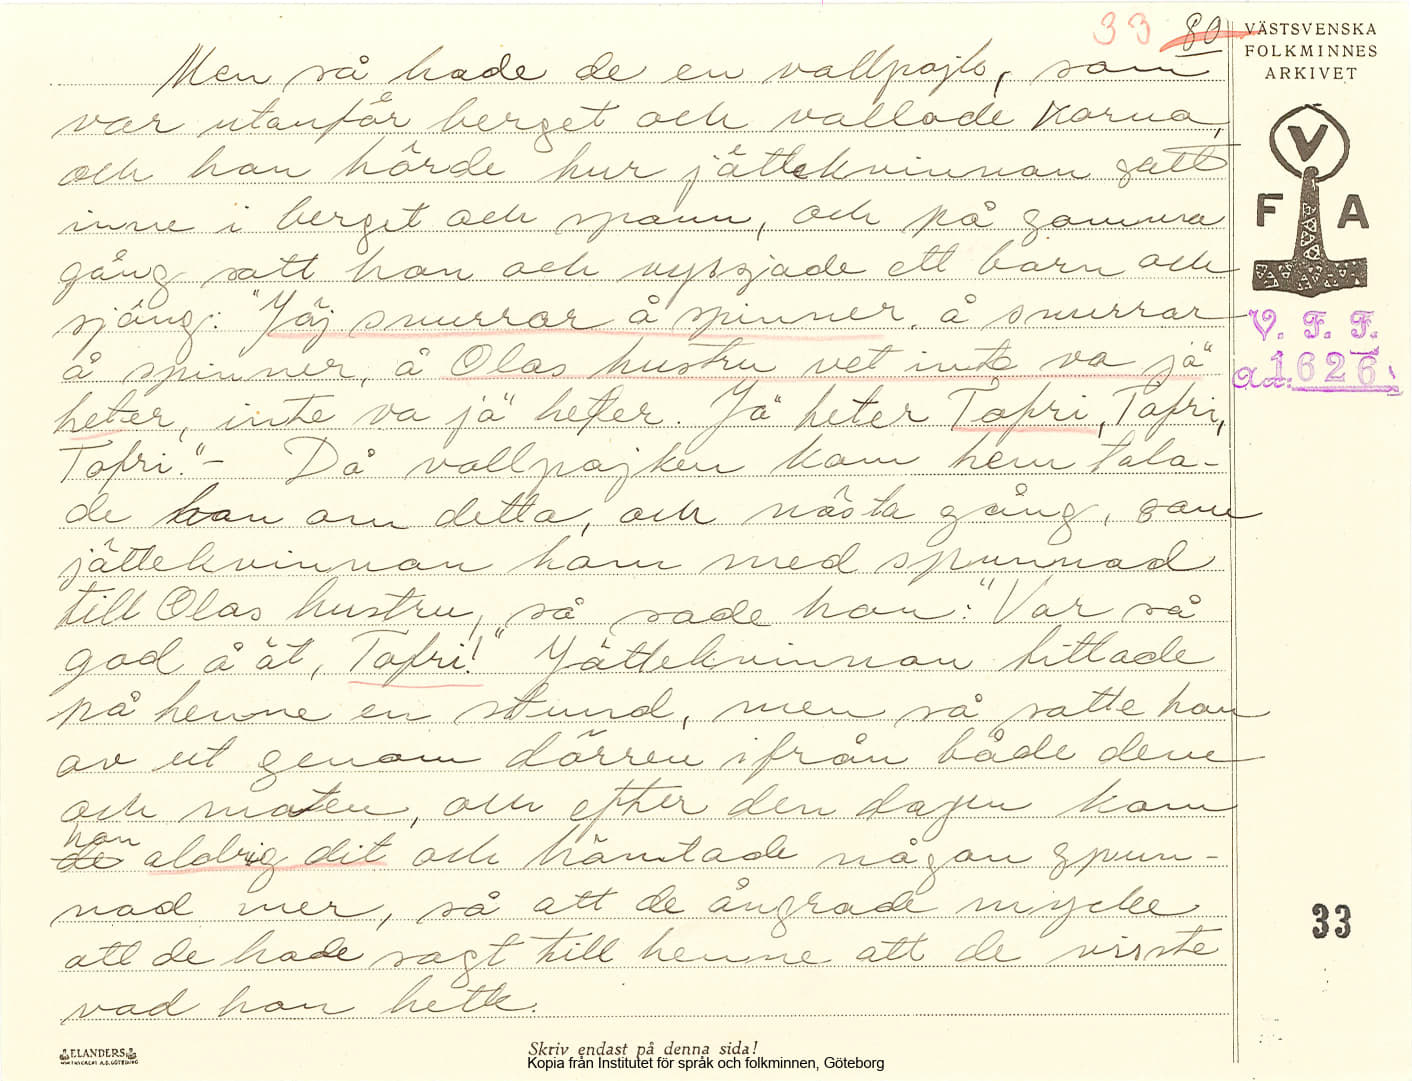 33 80
VÄSTSVENSKA
FOLKMINNES
ARKIVET
V
F A
V. F. F.
acc. 1626
Men så hade de en vallpojk, som
var utanför berget och vallade korna,
och han hörde hur jättekvinnan satt
inne i berget och spann, och på samma
gång satt hon och vyssjade ett barn och
sjöng: "Jäj snurrar å spinner, å snurrar
å spinner, å Olas hustru vet inte va jä
heter, inte va jä heter. Jä heter Tofri, Tofri,
Tofri." – Då vallpojken kom hem tala-
de han om detta, och nästa gång, som
jättekvinnan kom med spunnad
till Olas hustru, så sade hon: "Var så
god å ät, Tofri!" Jättekvinnan tittade
på henne en stund, men så satte hon
av ut genom dörren ifrån både dem
och maten, och efter den dagen kom
hon
de aldrig dit och hämtade någon spun-
nad mer, så att de ångrade mycke
att de hade sagt till henne att de visste
vad hon hette.
33
ELANDERS
Skriv endast på denna sida!
Kopia från Institutet för språk och folkminnen, Göteborg